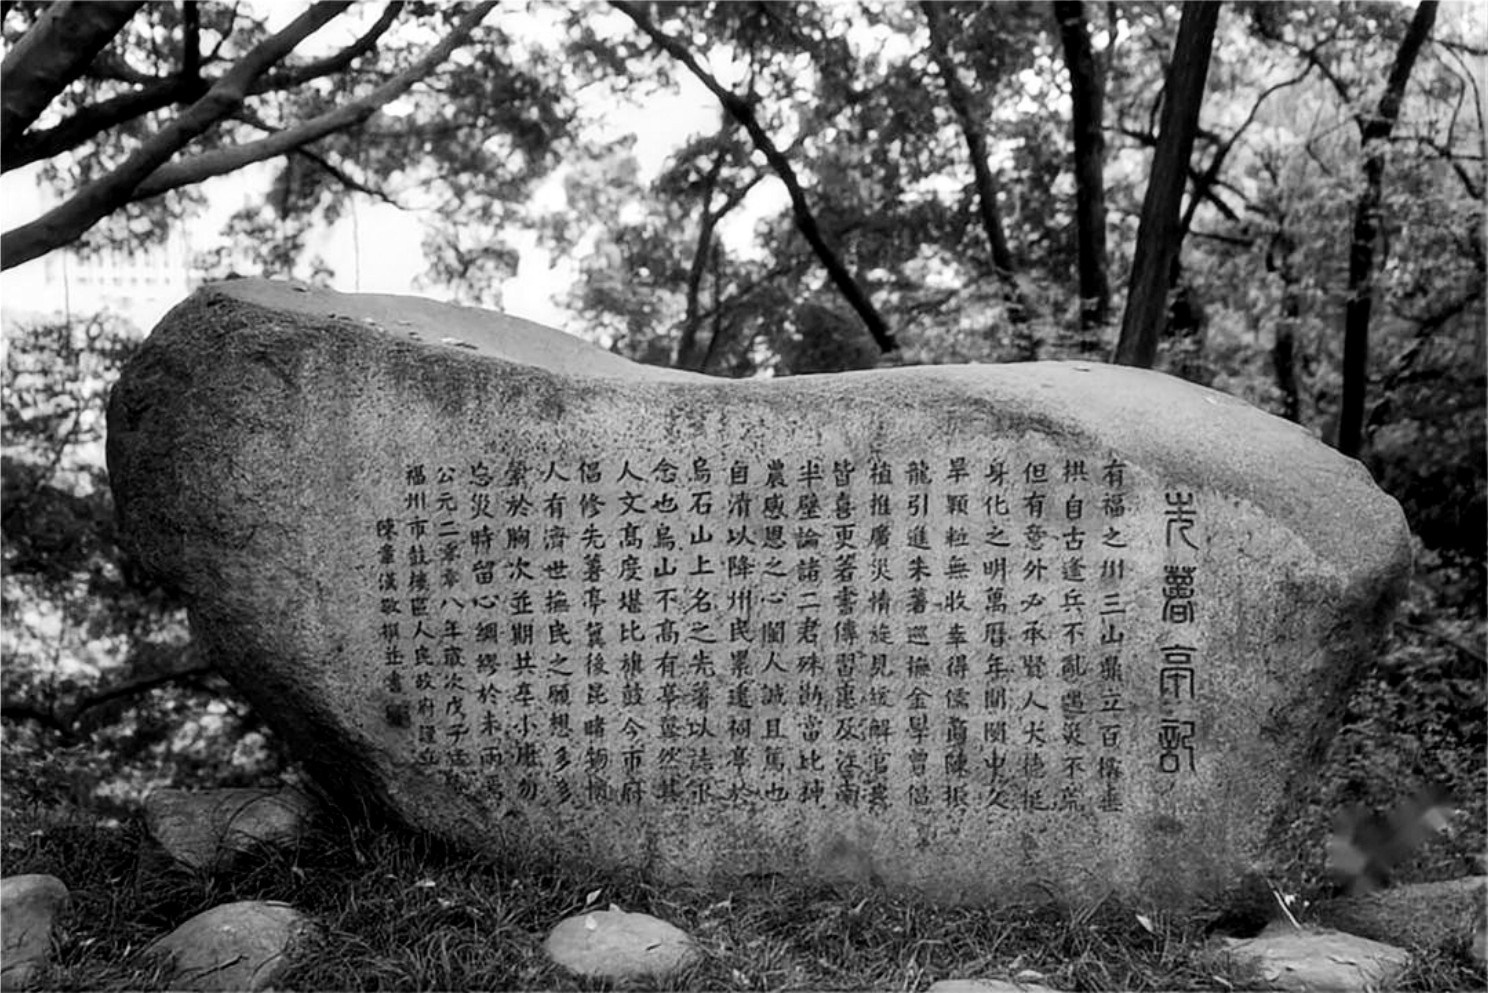 先薯亭記
有福之州三山鼎立百橫垂
拱自古逢兵不亂遇災不荒
但有意外必承賢人大德挺
身化之明萬曆年間閩中久
旱顆粒無收幸得儒商陳振
龍引進朱薯巡撫金學曾倡
植推廣災情旋見緩解官農
皆喜更著書傳習惠及江南
半壁論諸二君殊勛當比神
農感恩之心閩人誠且篤也
自清以降州民累建祠亭於
烏石山上名之先薯以誌永
念也烏山不高有亭翼然其
人文高度堪比旗鼓今市府
倡修先薯亭冀後昆睹物懷
人有濟世撫民之願想多多
縈於胸次並期共奔小康勿
忘災時留心綢繆於未雨焉
公元二零零八年歲次戊子
福州市鼓樓區人民政府謹立
陳章漢敬撰並書